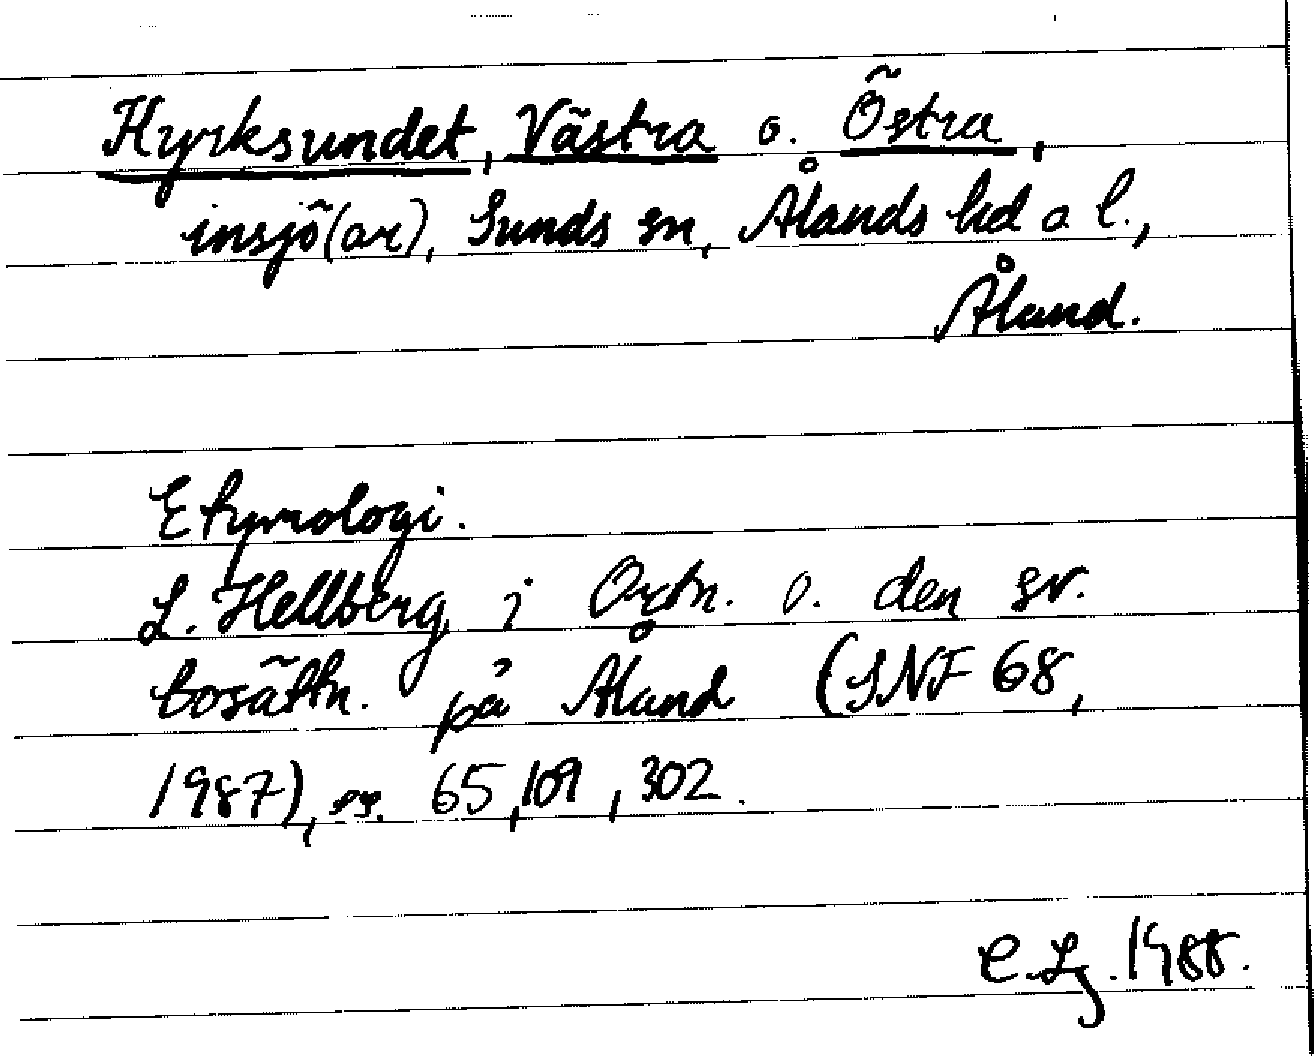 Kyrksundet, Västra o. Östra,
insjö(ar), Sunds sn, Ålands hd o l.,
Åland.
Etymologi.
L. Hellberg i Ortn. o. den sv.
bosättn. på Åland (SNF 68,
1987), ss. 65, 109, 302.
C. Lg. 1988.